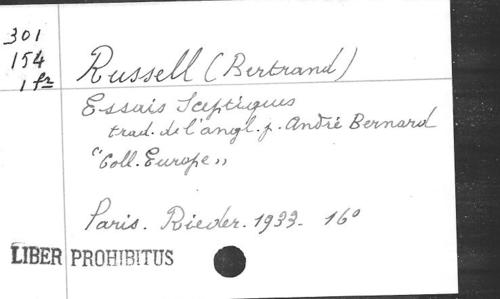 301
154
1 fr
Russell (Bertrand)
Essais Sceptiques
trad. de l'angl. p. André Bernard
"Coll. Europe"
Paris. Rieder. 1933. 16°
LIBER PROHIBITUS